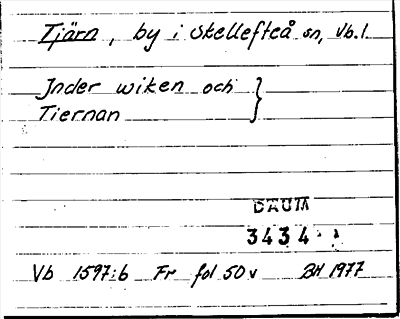 Tjärn, by i Skellefteå sn, Vb.l.
Inder wiken och }
Tiernan
DAUM
3434
Vb 1597:6 Fr fol 50v BH 1977